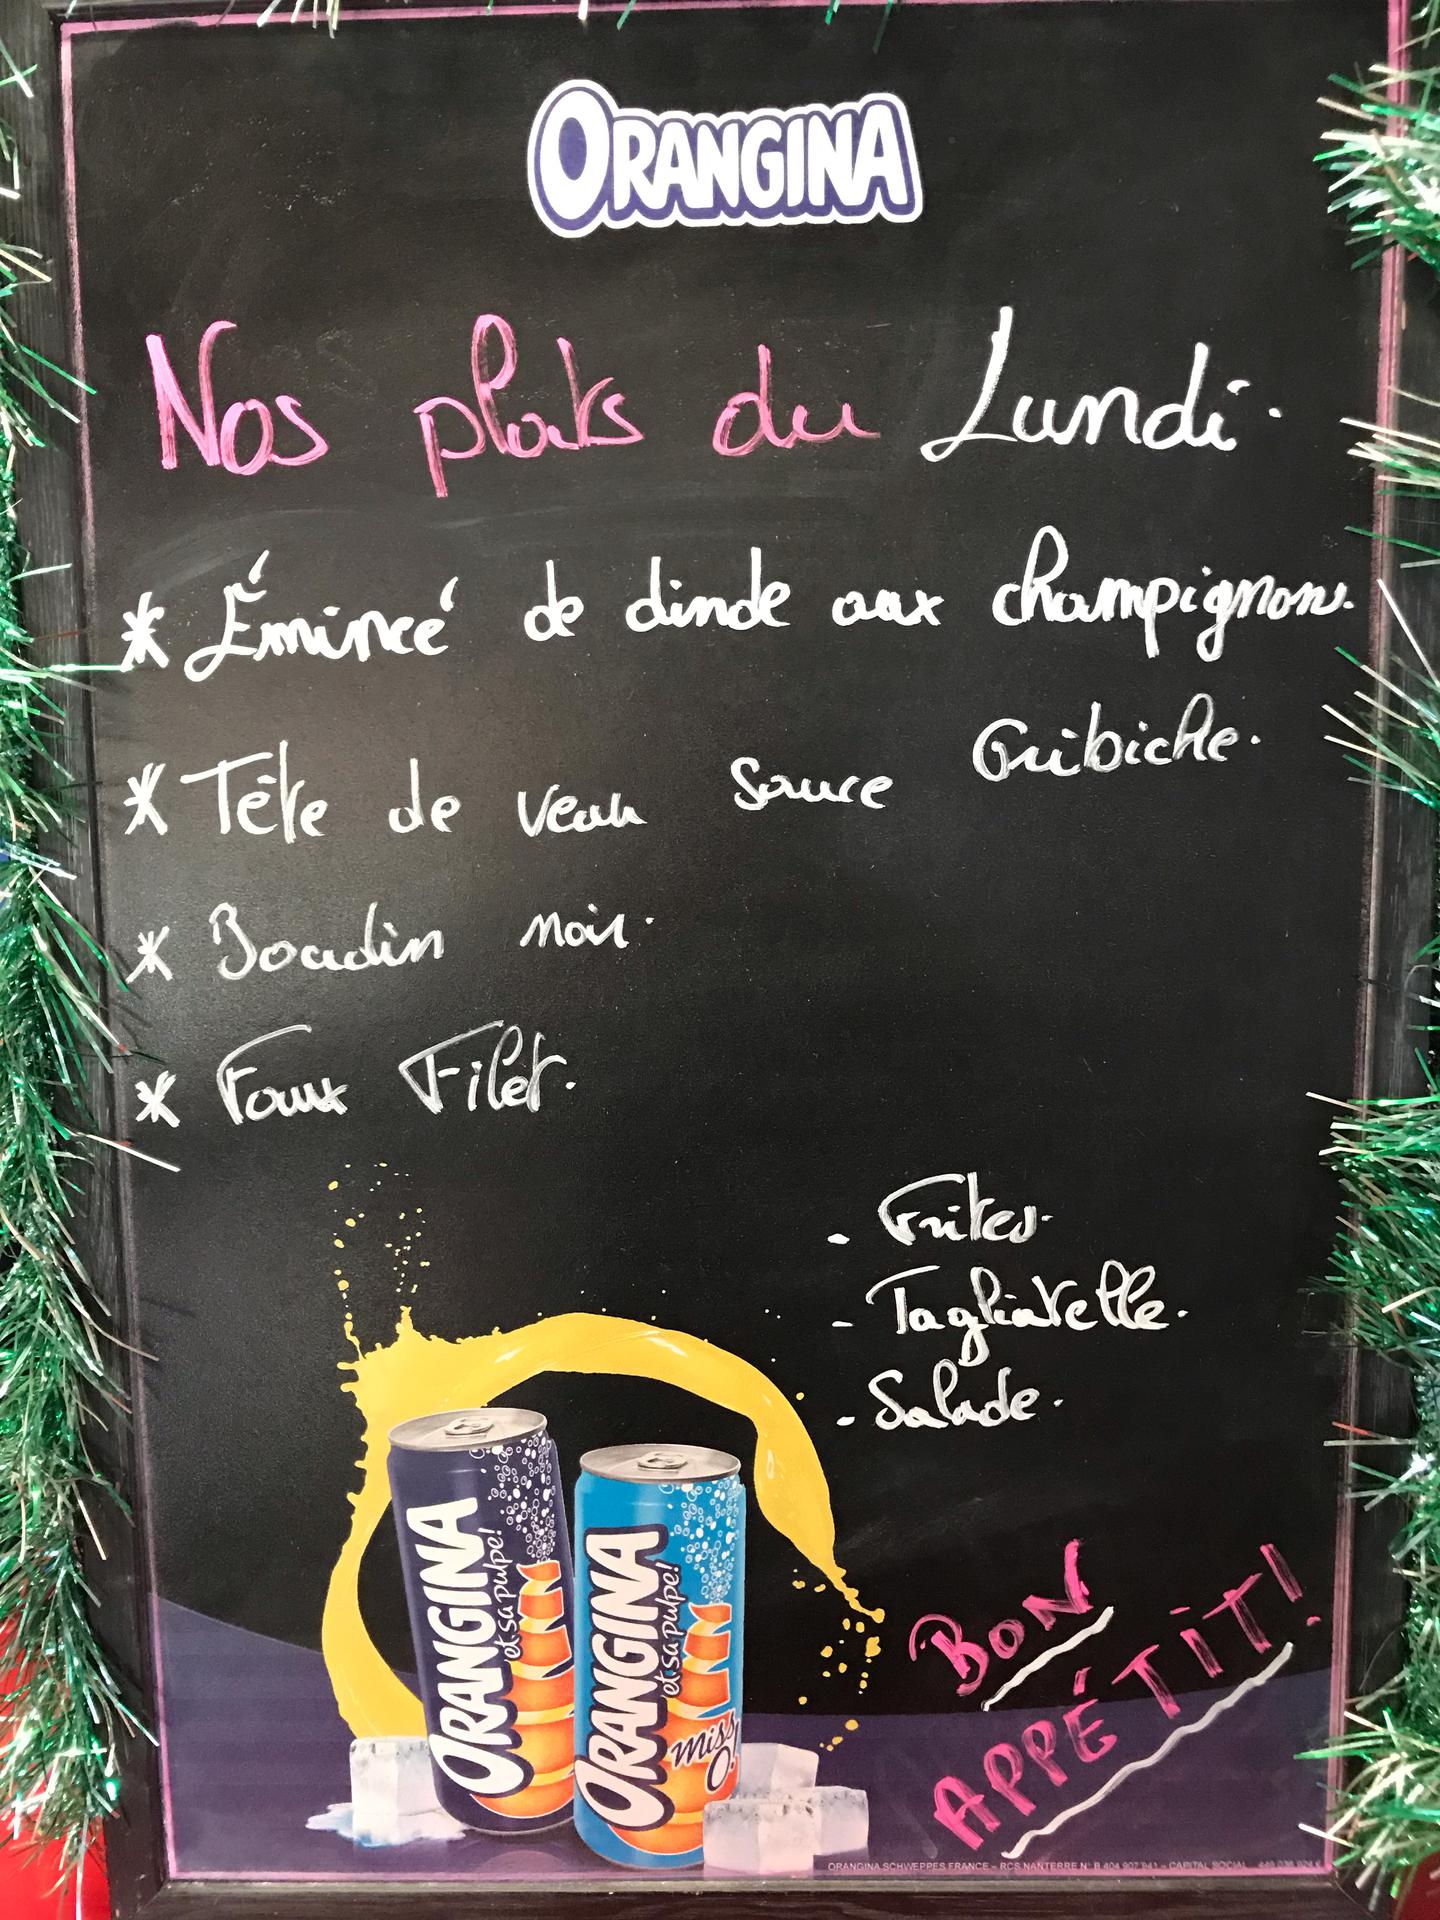 ORANGINA
Nos plats du Lundi.
* Émincé de dinde aux champignons.
* Tête de veau sauce Gribiche.
* Boudin noir.
* Faux Filet.
- Frites.
- Tagliatelle.
- Salade.
ORANGINA
et sa pulpe!
ORANGINA
et sa pulpe!
miss
O!
BON
APPÉTIT!
ORANGINA SCHWEPPES FRANCE – RCS NANTERRE N° B 404 907 941 – CAPITAL SOCIAL